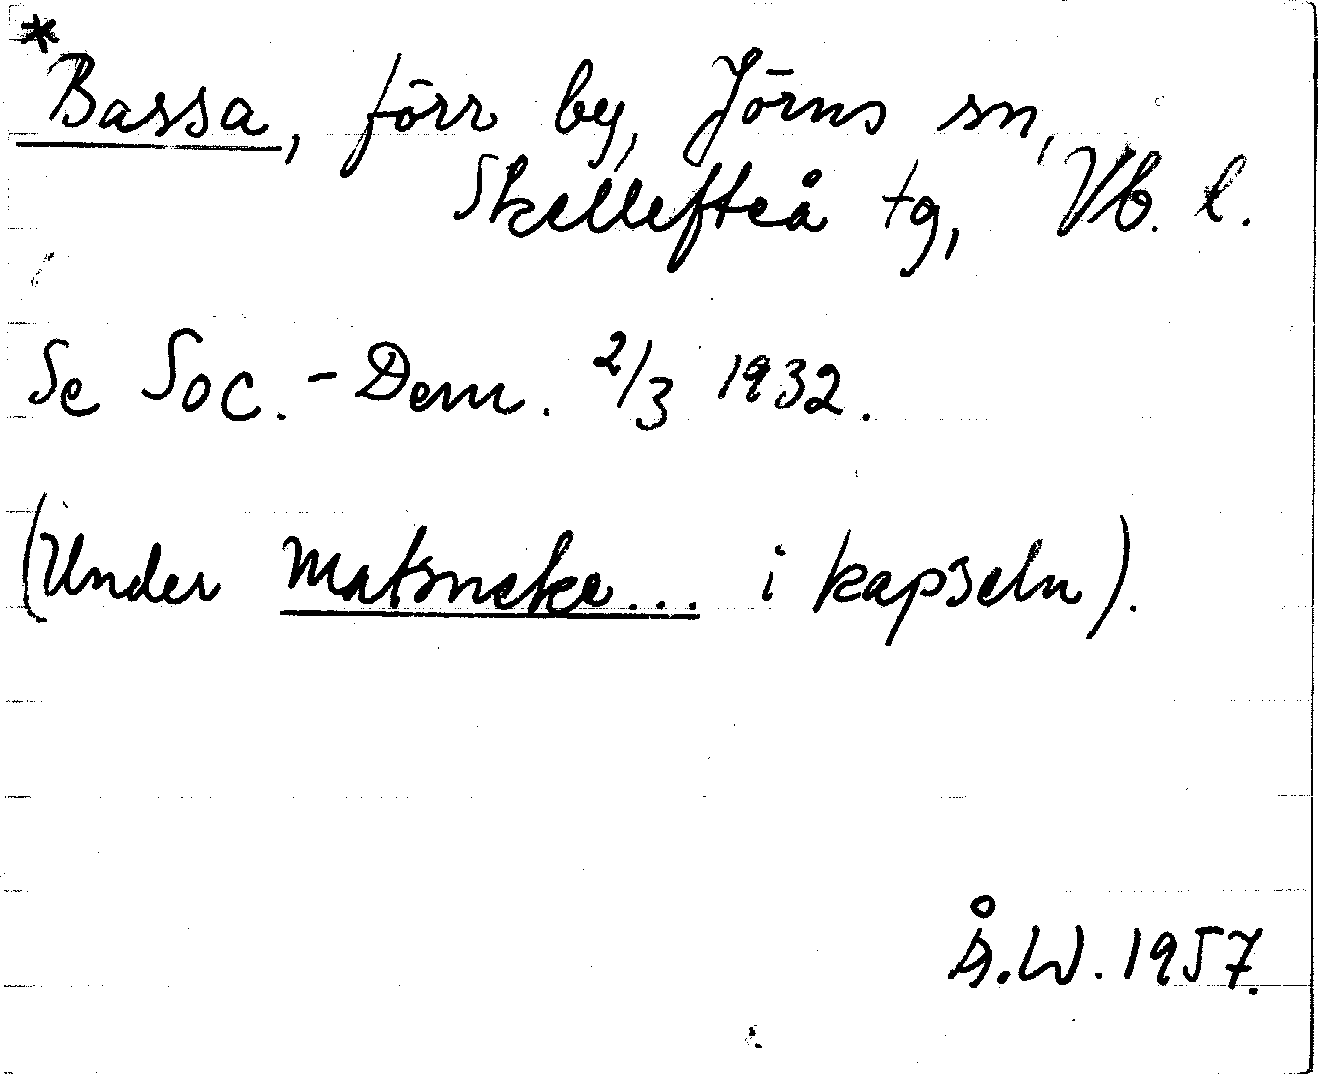 *Bassa, förr by, Jörns sn,
Skellefteå tg, Vb. l.
Se Soc.-Dem. 2/3 1932.
(Under Matsneke... i kapseln).
Å.W. 1957.